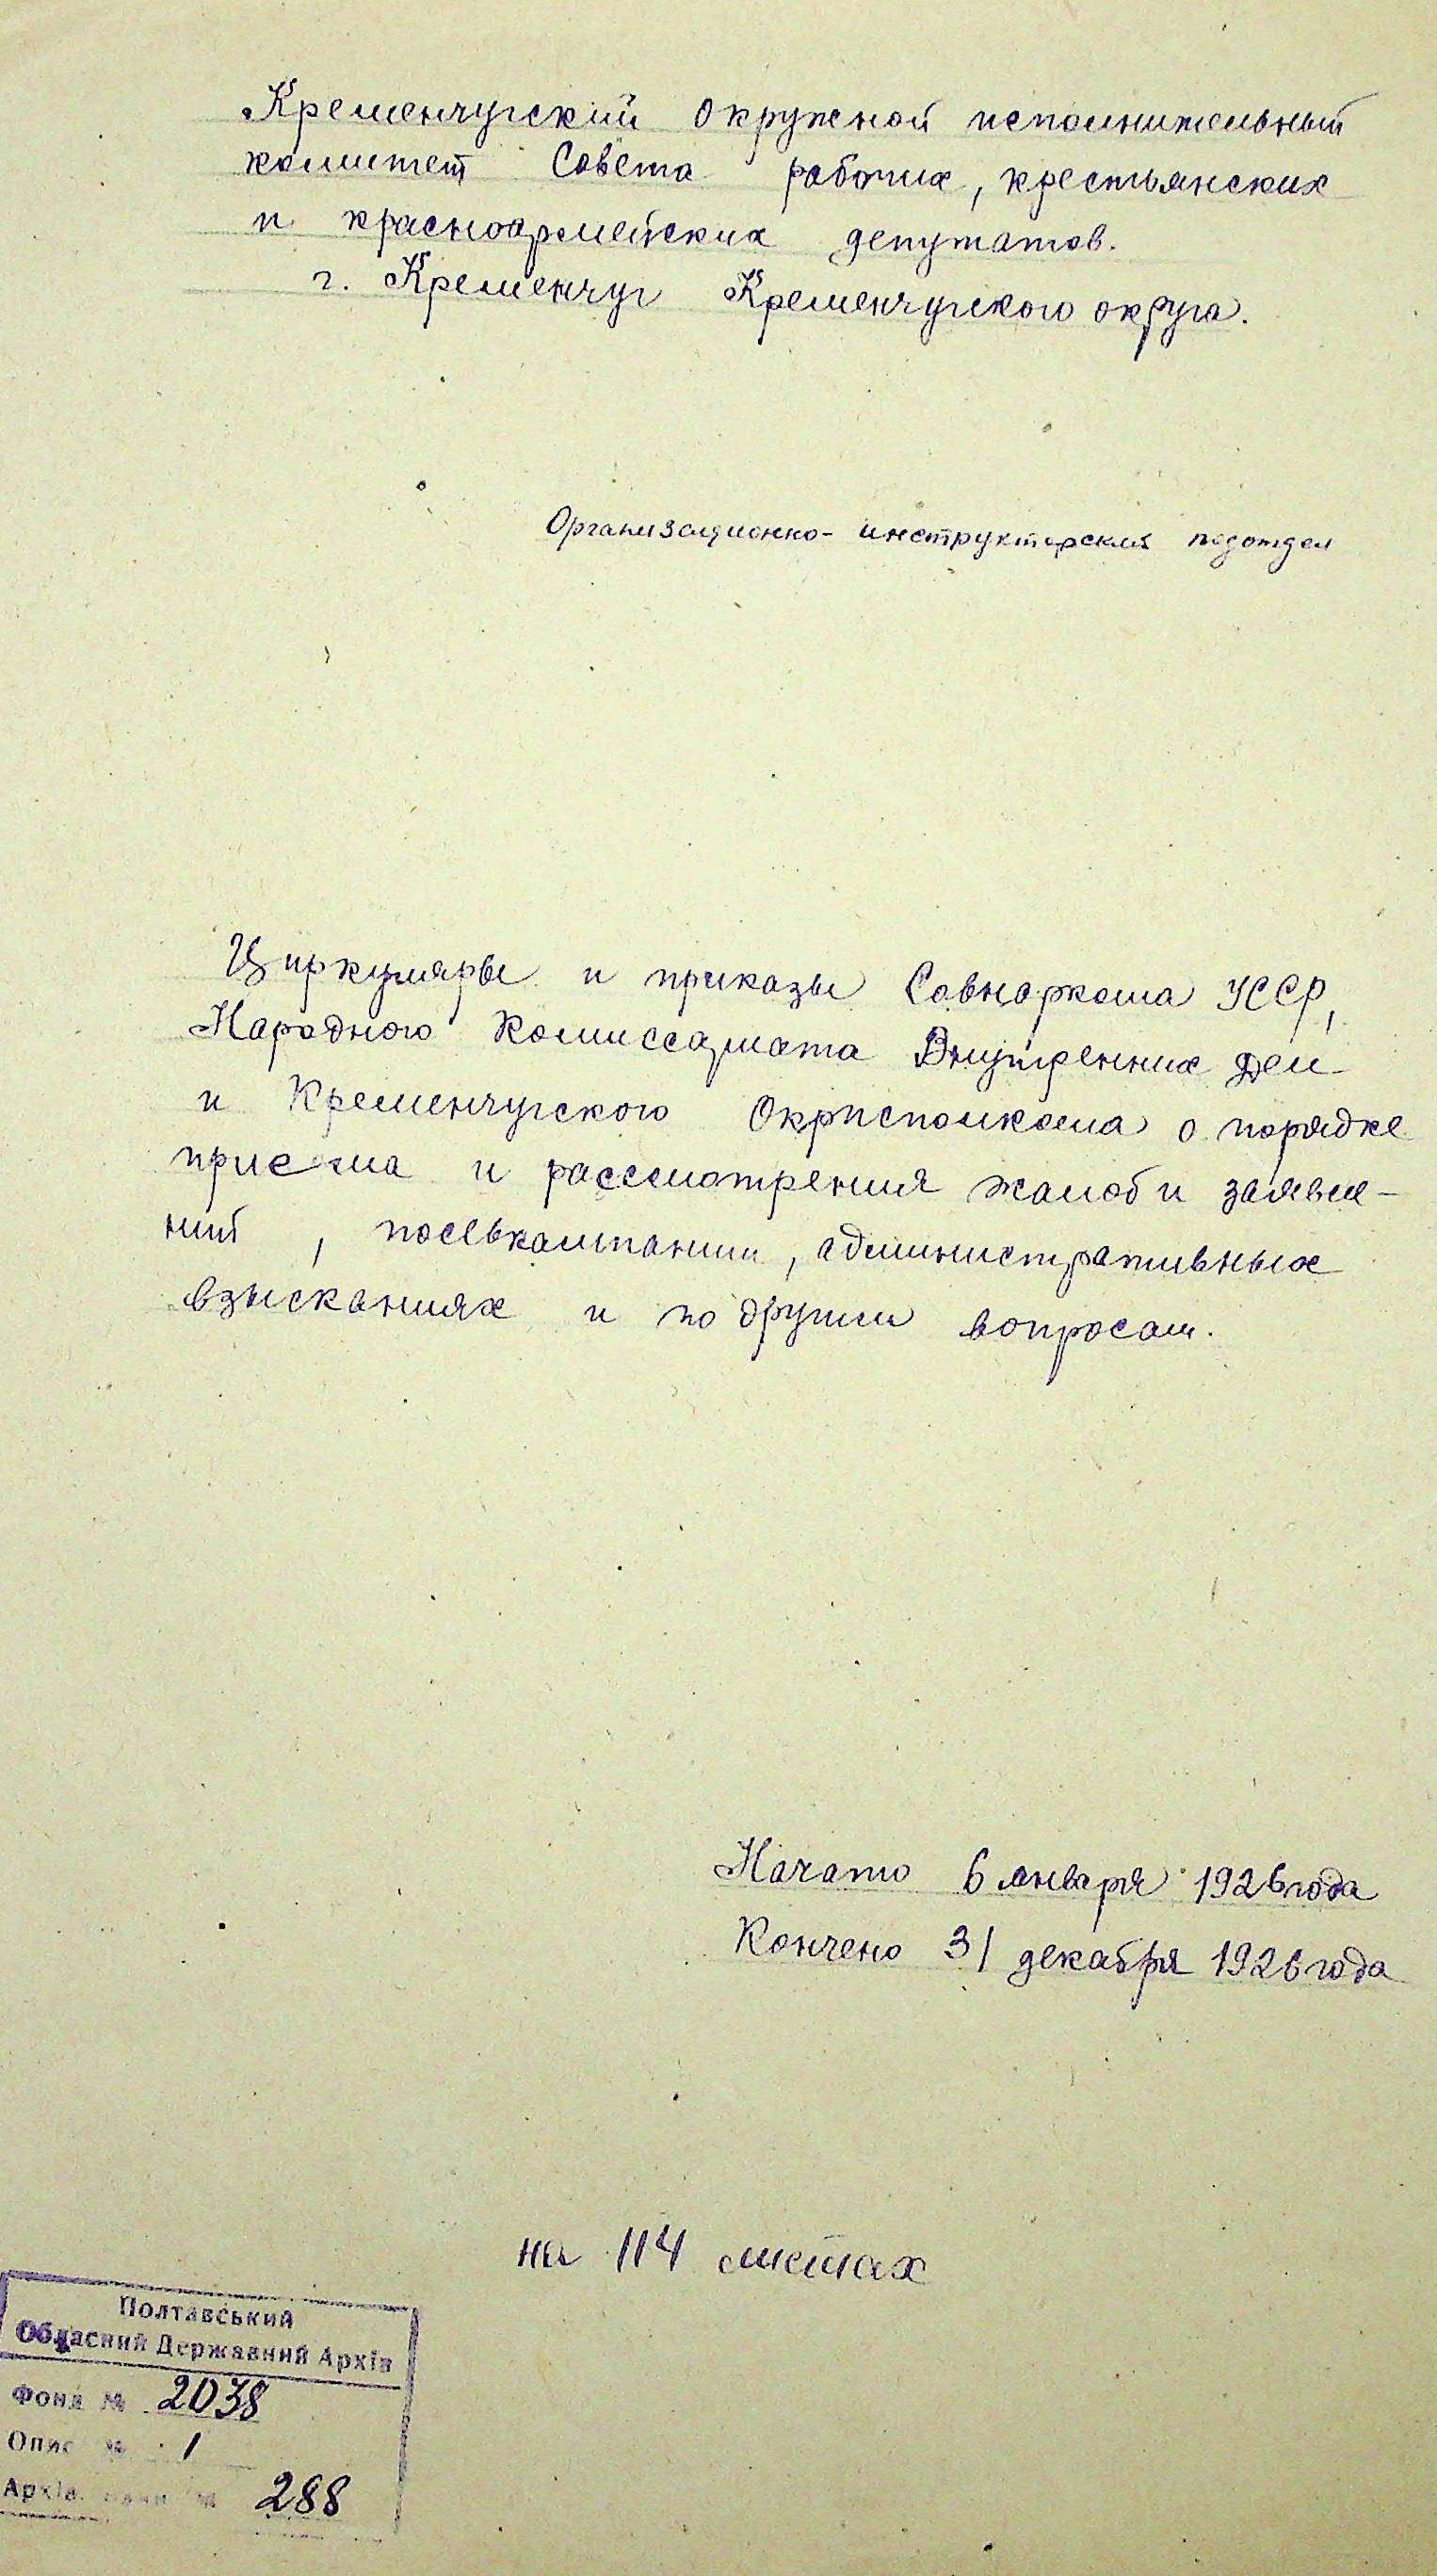 Кременчугский Окружной исполнительный
комитет Совета рабочих, крестьянских
и красноармейских депутатов.
г. Кременчуг Кременчугского округа.
Организационно-инструкторский подотдел
Циркуляры и приказы Совнаркома УССР,
Народного Комиссариата Внутренних Дел
и Кременчугского Окрисполкома о порядке
приема и рассмотрения жалоб и заявле-
ний, посевкампании, административных
взысканиях и по другим вопросам.
Начато 6 января 1926 года
Кончено 31 декабря 1926 года
на 114 листах
Полтавський
Обласний Державний Архів
Фонд № 2038
Опис № 1
Архів. № 288